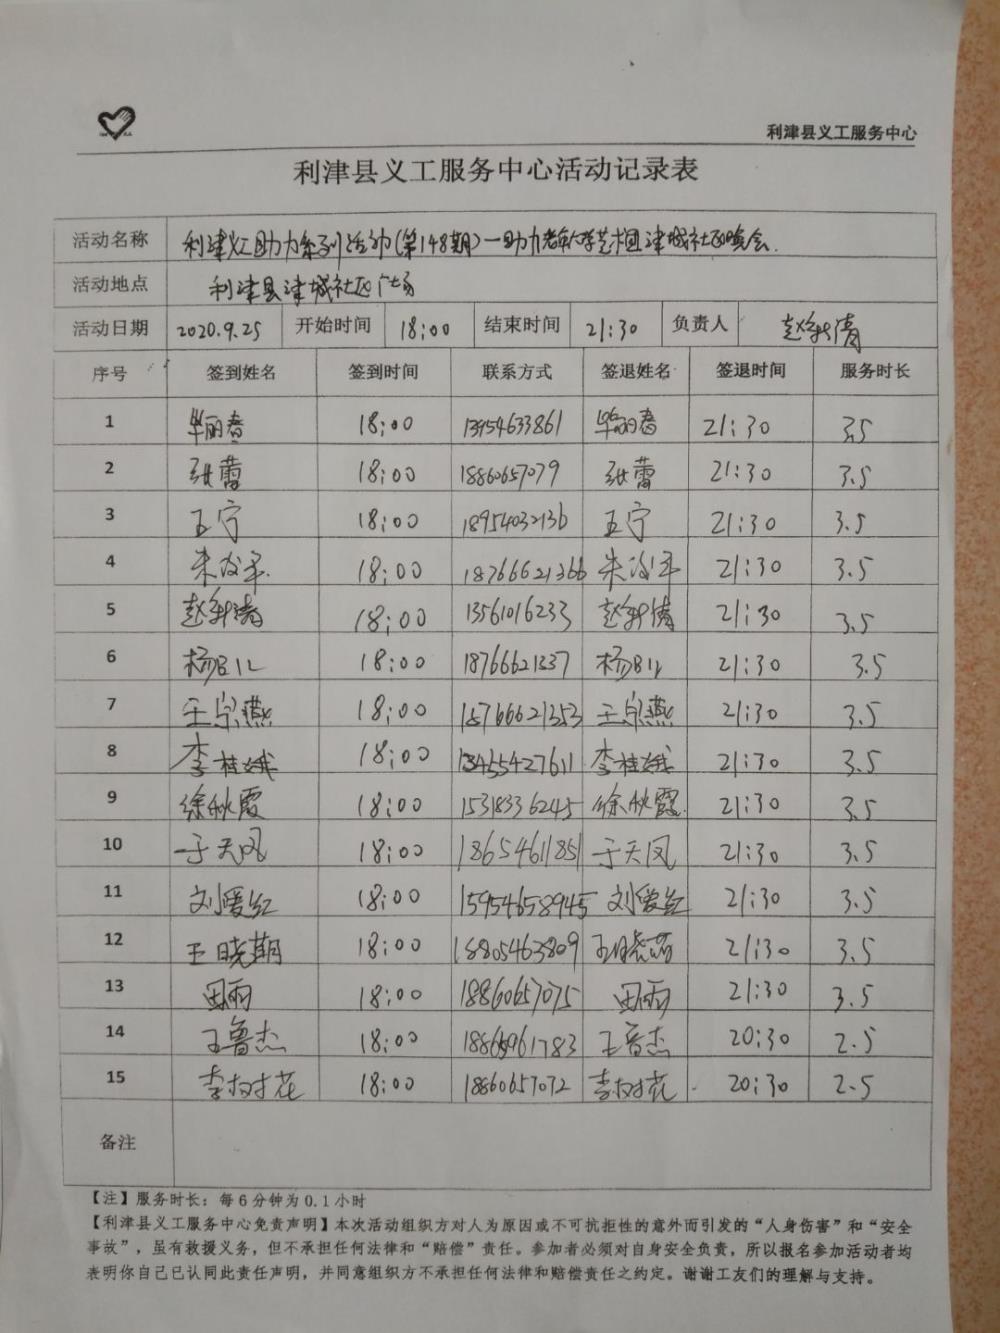 利津县义工服务中心
利津县义工服务中心活动记录表
活动名称 利津义工助力系列活动(第148期)—助力老年大学艺术团津城社区晚会.
活动地点 利津县津城社区广场
活动日期 2020.9.25 开始时间 18:00 结束时间 21:30 负责人 赵新清
序号 签到姓名 签到时间 联系方式 签退姓名 签退时间 服务时长
1 毕丽春 18:00 13954633861 毕丽春 21:30 3.5
2 张蕾 18:00 18860657079 张蕾 21:30 3.5
3 王宁 18:00 18954032136 王宁 21:30 3.5
4 18:00 18766621366 21:30 3.5
5 赵新清 18:00 13561016233 赵新清 21:30 3.5
6 18:00 18766621337 21:30 3.5
7 王宗燕 18:00 18766621353 王宗燕 21:30 3.5
8 李桂娥 18:00 13455427611 李桂娥 21:30 3.5
9 徐秋霞 18:00 15318336245 徐秋霞 21:30 3.5
10 于天凤 18:00 18654611851 于天凤 21:30 3.5
11 刘爱红 18:00 15954658945 刘爱红 21:30 3.5
12 18:00 18805463809 21:30 3.5
13 田雨 18:00 18860657075 田雨 21:30 3.5
14 王鲁杰 18:00 王鲁杰 20:30 2.5
15 李树花 18:00 18860657072 李树花 20:30 2.5
备注
【注】服务时长：每6分钟为0.1小时
【利津县义工服务中心免责声明】本次活动组织方对人为原因或不可抗拒性的意外而引发的“人身伤害”和“安全
事故”，虽有救援义务，但不承担任何法律和“赔偿”责任。参加者必须对自身安全负责，所以报名参加活动者均
表明你自己已认同此责任声明，并同意组织方不承担任何法律和赔偿责任之约定。谢谢工友们的理解与支持。